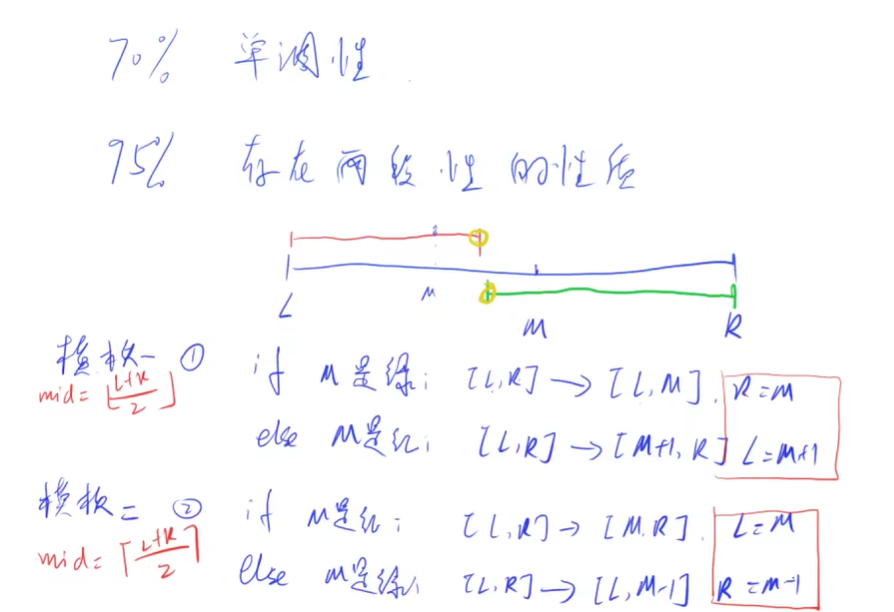 70% 单调性
95% 存在两段性的性质
L M M R
模板一 ① if M是绿; [L,R] → [L,M]. R=M
mid= ⌊(L+R)/2⌋
else M是红; [L,R] → [M+1,R] L=M+1
模板二 ② if M是红; [L,R] → [M,R]. L=M
mid= ⌈(L+R)/2⌉
else M是绿; [L,R] → [L,M-1] R=M-1